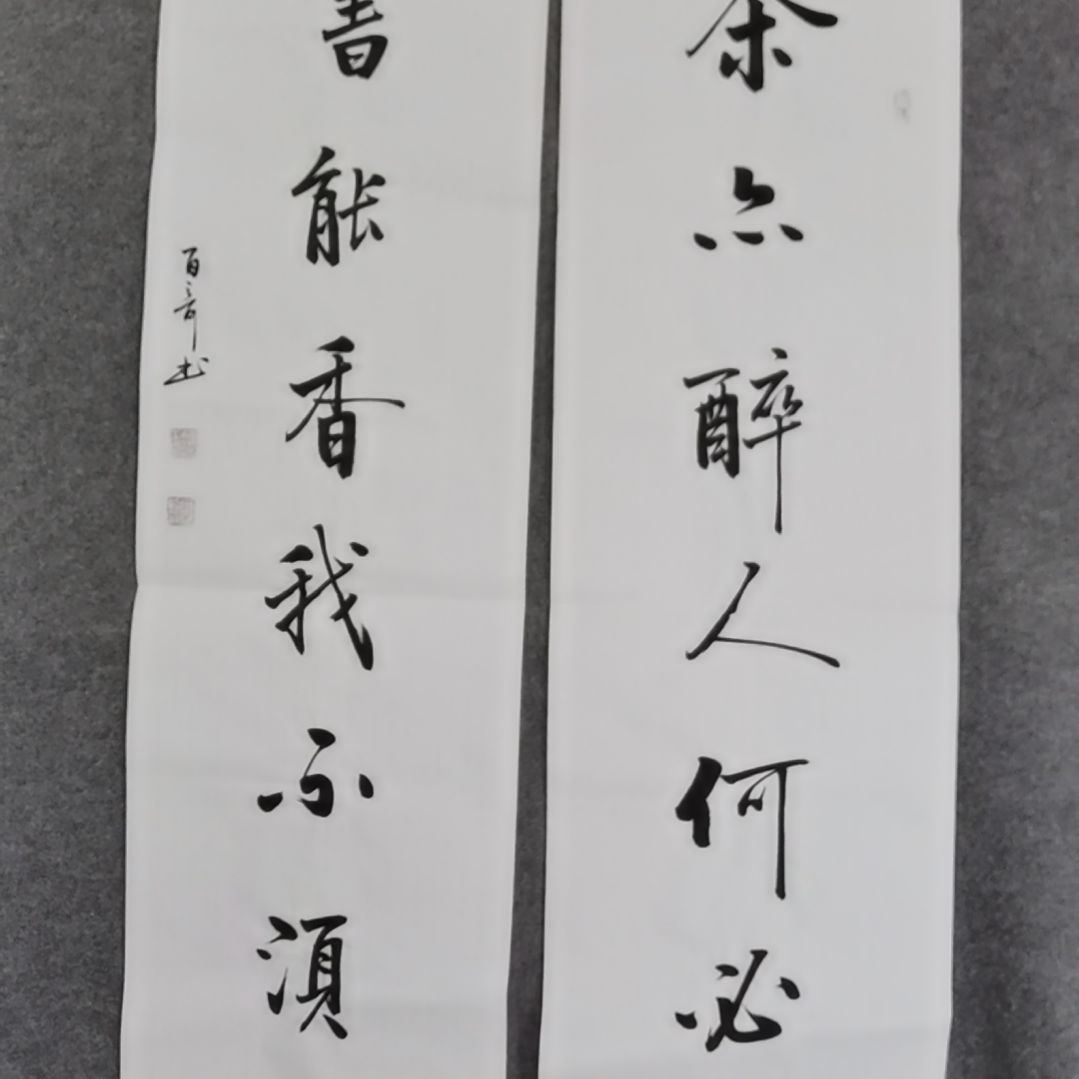 茶亦醉人何必
書能香我不須
百奇书